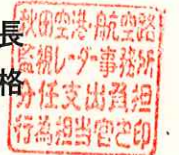 長
格
秋田空港・航空路
監視レーダー事務所
分任支出負担
行為担当官之印